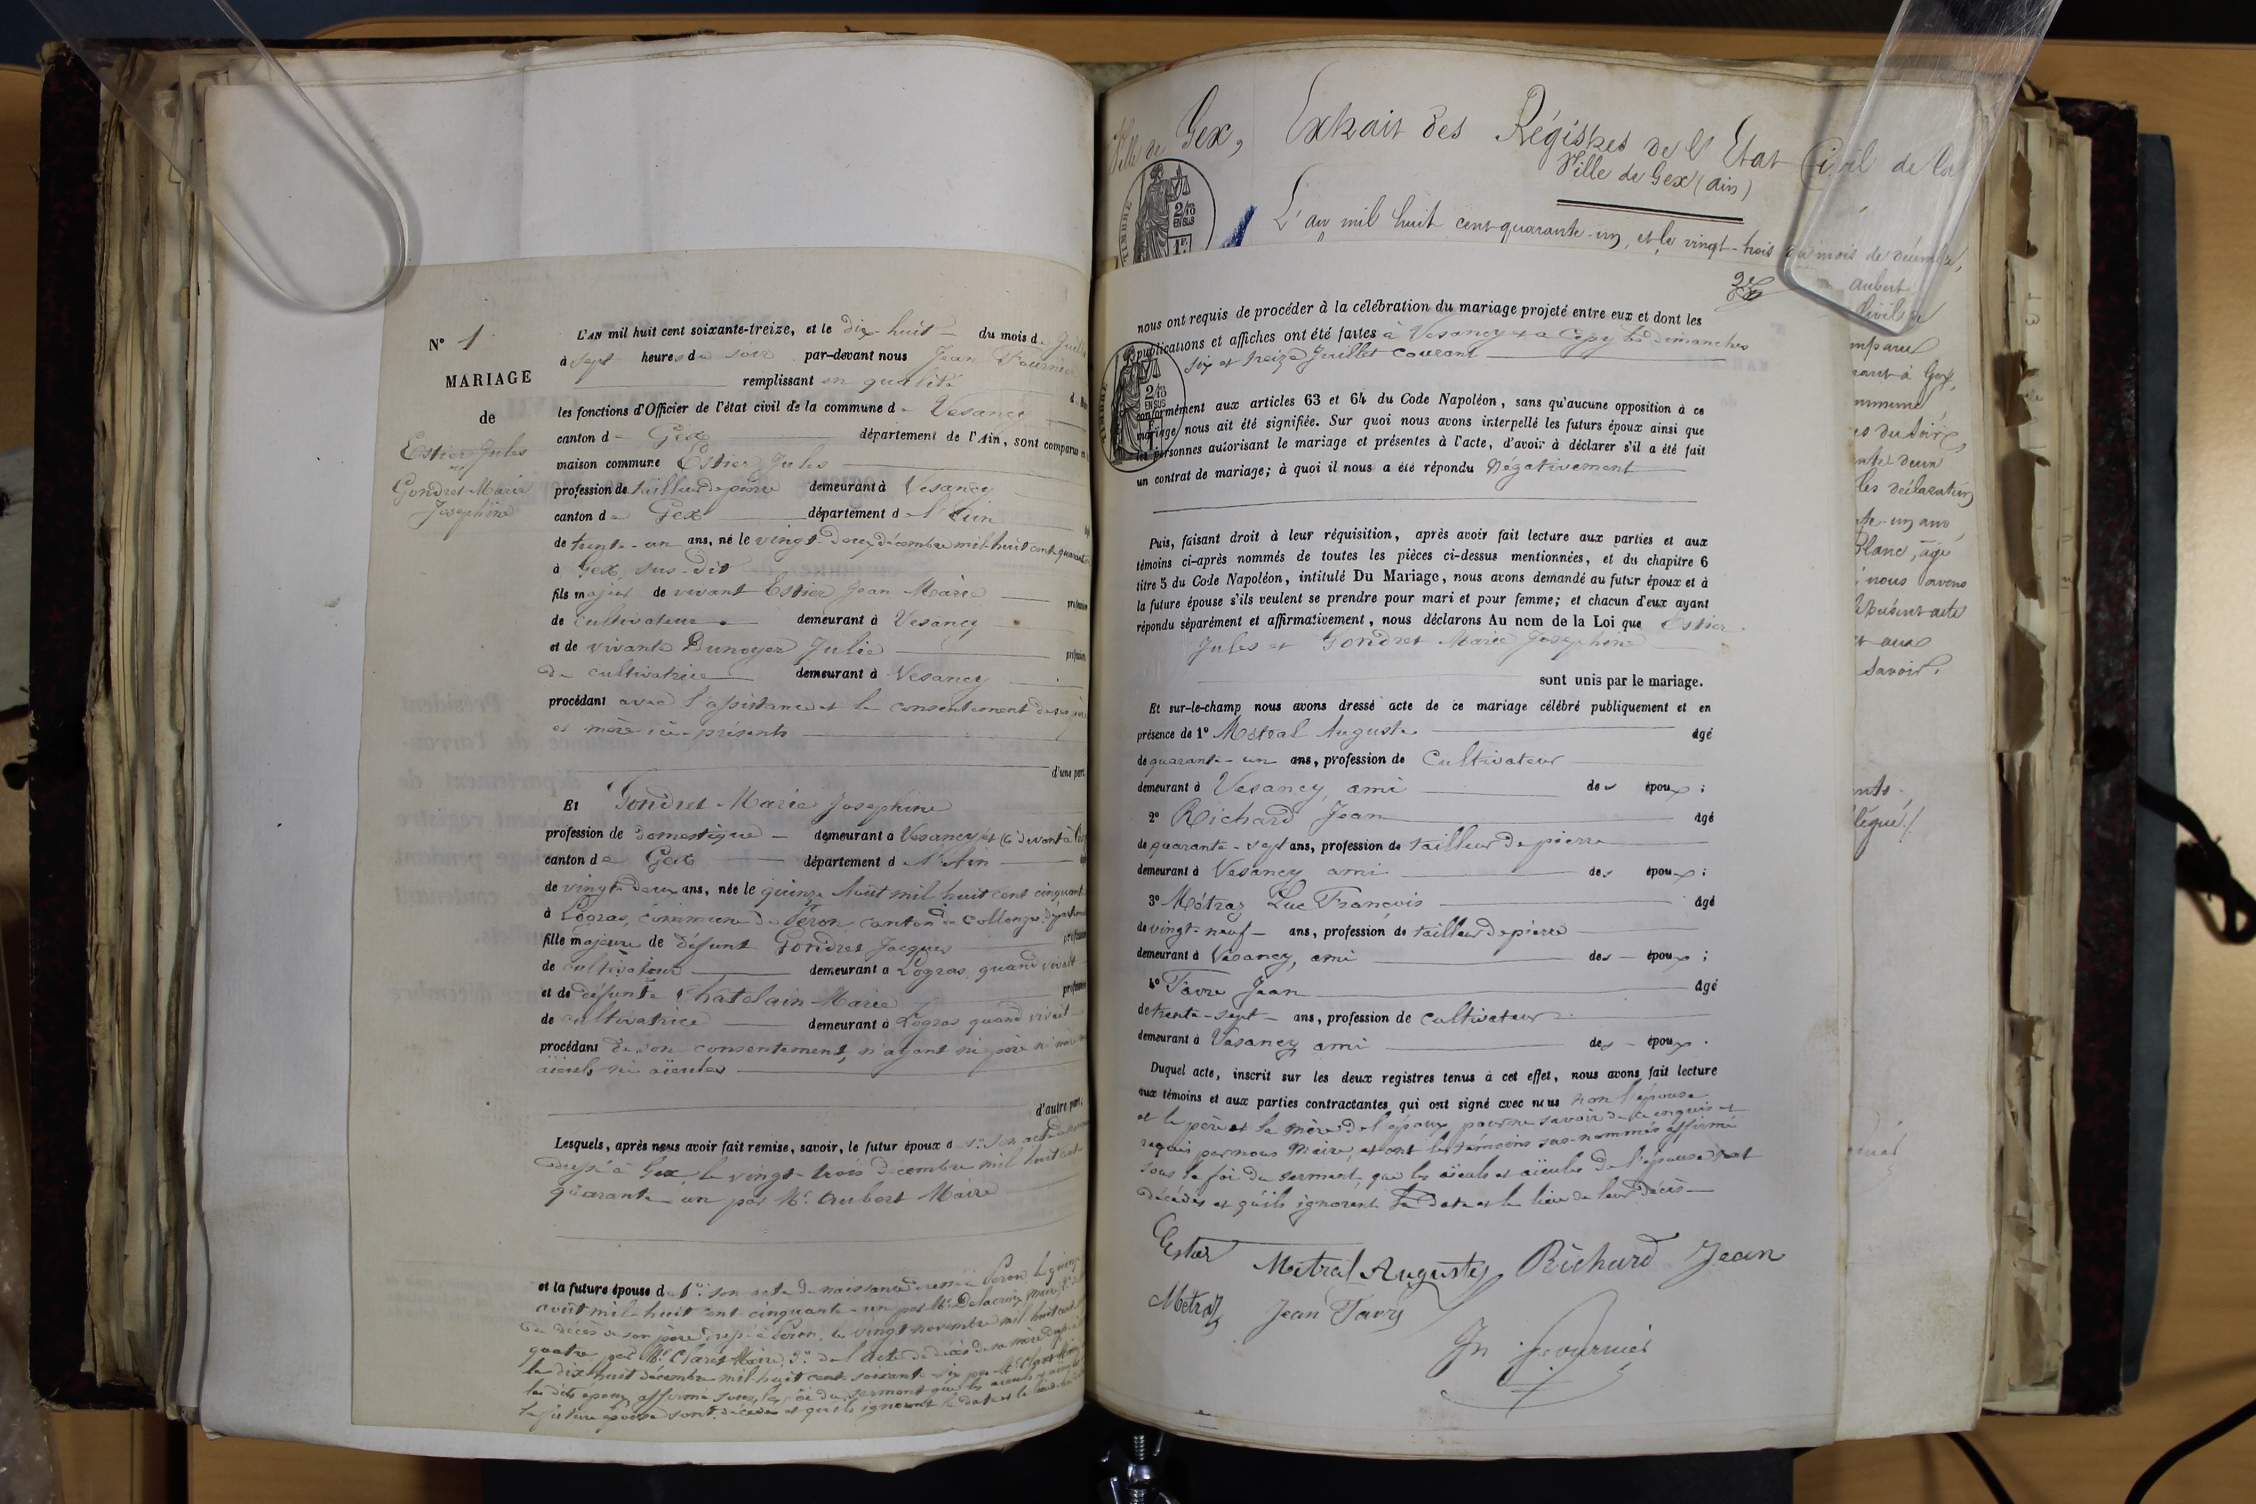 N° 1
MARIAGE
de
Estier Jules
et
Gondret Marie
Josephine
L'AN mil huit cent soixante-treize, et le dix-huit du mois d
à sept heures du soir par-devant nous Jean Fournier
remplissant en qualité
les fonctions d'Officier de l'état civil de la commune de Vesancy
canton de Gex département de l'Ain, sont comparus en
maison commune Estier Jules
profession de tailleur de pierre demeurant à Vesancy
canton de Gex département de l'Ain
de trente-un ans, né le vingt-deux décembre mil huit cent quarante
à Gex, sus-dit
fils majeur de vivant Estier Jean Marie
de cultivateur demeurant à Vesancy
et de vivante Dunoyer Julie
de cultivatrice demeurant à Vesancy
procédant avec l'assistance et le consentement de ses père
et mère ici-présents
d'une part.
Et Gondret Marie Josephine
profession de domestique demeurant à Vesancy et
canton de Gex département de l'Ain
de vingt-deux ans, née le quinze Août mil huit cent cinquante
à Logras, commune de Péron canton de Collonges
fille majeure de défunt Gondret Jacques
de cultivateur demeurant à Logras quand vivait
et de défunte Chatelain Marie
de cultivatrice demeurant à Logras quand vivait
procédant de son consentement, n'ayant ni père ni mère ni
aïeuls ni aïeules
d'autre part.
Lesquels, après nous avoir fait remise, savoir, le futur époux d 1° son acte
à Gex, le vingt-trois décembre mil huit cent
quarante-un par Mr. Aubert Maire
et la future épouse de 1° son acte de naissance dressé à Péron le quinze
août mil huit cent cinquante-un par Mr. Delacroix Maire
de décès de son père à Péron, le vingt novembre mil huit cent
quatre par Mr. Claret Maire, 3° de l'acte de décès de sa mère
le dix-huit décembre mil huit cent soixante-six par Mr. Claret
les dits époux affirmé sous la foi du serment que les aïeuls
la future épouse sont décédés et qu'ils ignorent la date et le lieu
Ville de Gex, Extrait des Régistres de l'Etat Civil de la
Ville de Gex (Ain)
L'an mil huit cent quarante-un, et le vingt-trois du mois de décembre,
TIMBRE
2/10
EN SUS
1F.
aubert
Civil
nous ont requis de procéder à la célébration du mariage projeté entre eux et dont les
publications et affiches ont été faites à Vesancy et à Cessy les dimanches
six et treize Juillet courant
TIMBRE
2/10
EN SUS
conformément aux articles 63 et 64 du Code Napoléon, sans qu'aucune opposition à ce
mariage nous ait été signifiée. Sur quoi nous avons interpellé les futurs époux ainsi que
les personnes autorisant le mariage et présentes à l'acte, d'avoir à déclarer s'il a été fait
un contrat de mariage; à quoi il nous a été répondu Négativement
Puis, faisant droit à leur réquisition, après avoir fait lecture aux parties et aux
témoins ci-après nommés de toutes les pièces ci-dessus mentionnées, et du chapitre 6
titre 5 du Code Napoléon, intitulé Du Mariage, nous avons demandé au futur époux et à
la future épouse s'ils veulent se prendre pour mari et pour femme; et chacun d'eux ayant
répondu séparément et affirmativement, nous déclarons Au nom de la Loi que Estier
Jules et Gondret Marie Josephine
sont unis par le mariage.
Et sur-le-champ nous avons dressé acte de ce mariage célébré publiquement et en
présence de 1° Métral Auguste âgé
de quarante-un ans, profession de Cultivateur
demeurant à Vesancy, ami des époux;
2° Richard Jean âgé
de quarante-sept ans, profession de tailleur de pierre
demeurant à Vesancy ami des époux;
3° Métraz Luc François âgé
de vingt-neuf ans, profession de tailleur de pierre
demeurant à Vesancy, ami des époux;
4° Favre Jean âgé
de trente-sept ans, profession de cultivateur
demeurant à Vesancy ami des époux.
Duquel acte, inscrit sur les deux registres tenus à cet effet, nous avons fait lecture
aux témoins et aux parties contractantes qui ont signé avec nous non l'épouse
et le père et la mère de l'époux, pour ne savoir de ce enquis et
requis par nous Maire, et ont les témoins sus-nommés affirmé
sous la foi du serment, que les aïeuls et aïeules de l'épouse sont
décédés et qu'ils ignorent la date et le lieu de leur décès
Estier Metral Auguste Richard Jean
Metraz Jean Favre
Jn Fournier